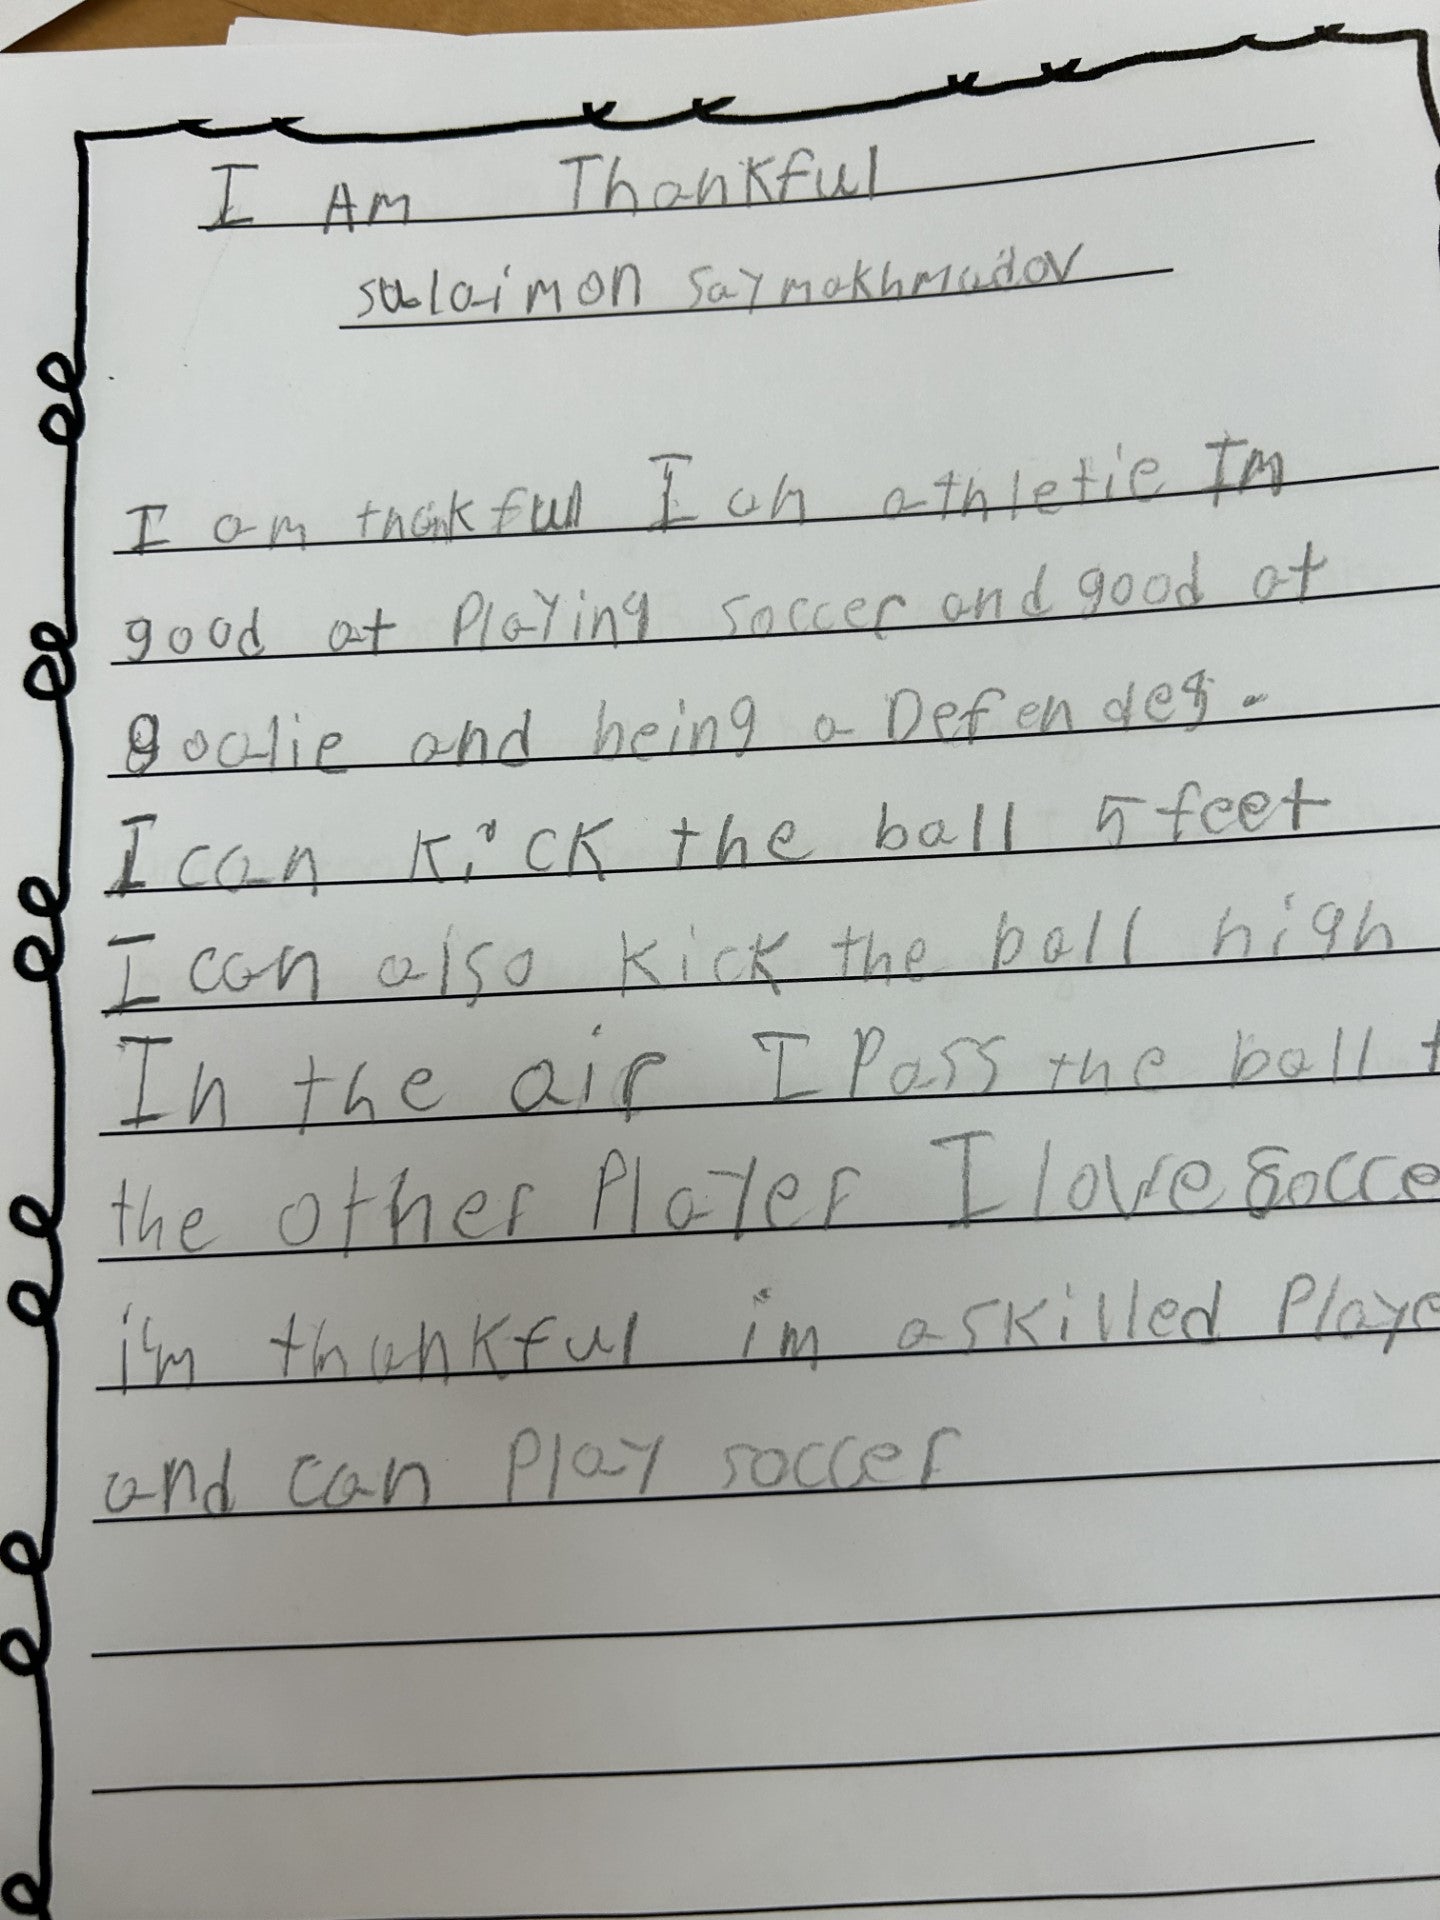 I AM Thankful
sulaimon saymakhmadov
I am thankful I am athletic Im
good at Playing soccer and good at
goalie and being a Defender.
I can kick the ball 5 feet
I can also kick the ball high
In the air I Pass the ball t
the other Player I love socce
i'm thankful im a skilled Playe
and can Play soccer